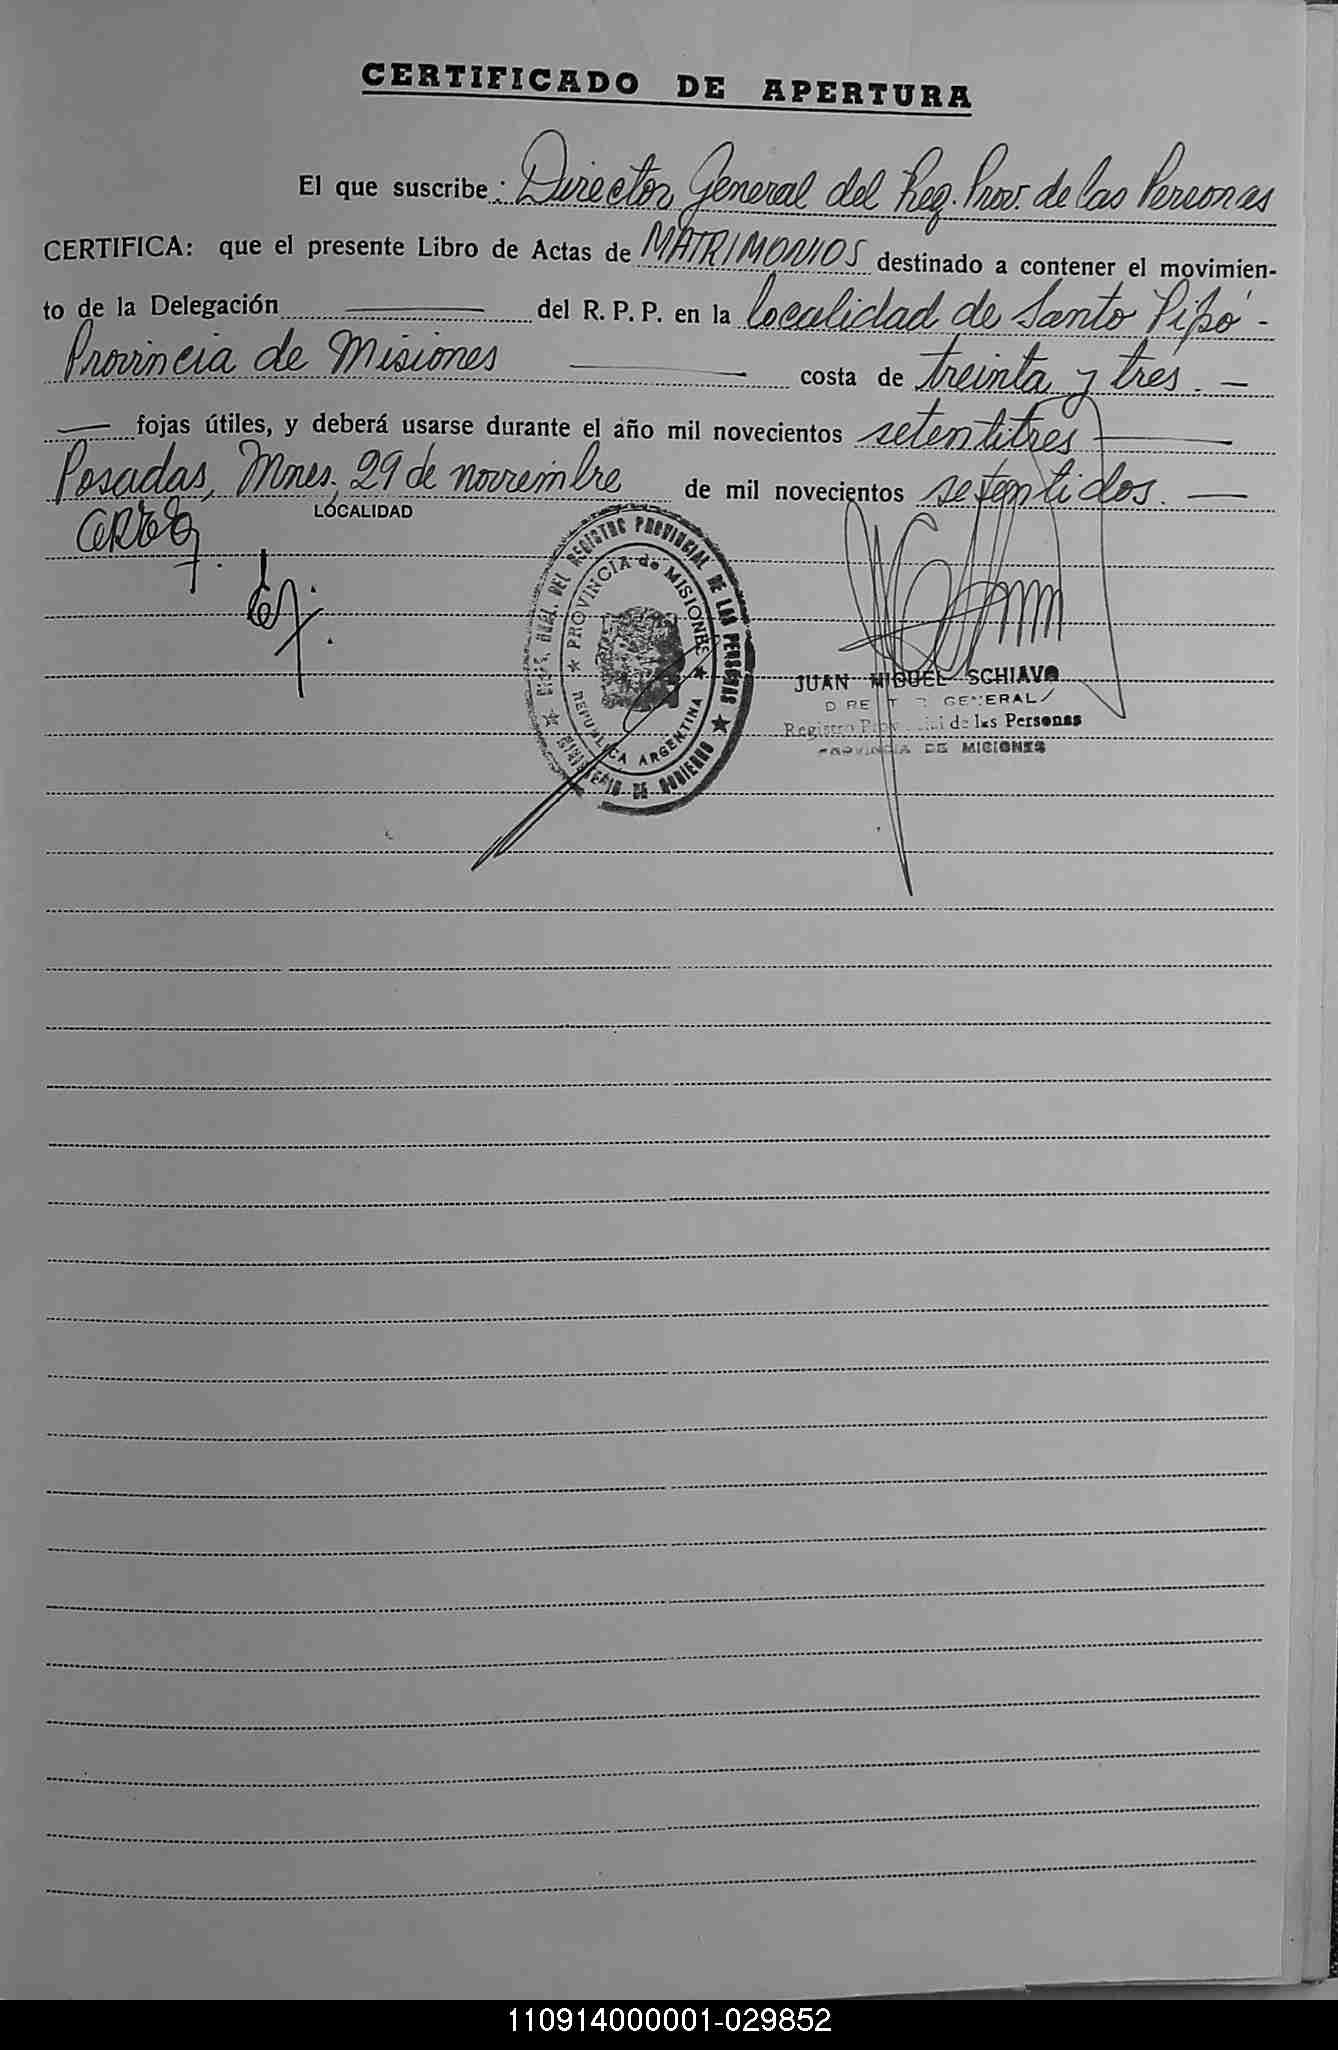 CERTIFICADO DE APERTURA
El que suscribe: Director General del Reg. Prov. de las Personas
CERTIFICA: que el presente Libro de Actas de MATRIMONIOS destinado a contener el movimien-
to de la Delegación del R. P. P. en la localidad de Santo Pipó -
Provincia de Misiones costa de treinta y tres. -
fojas útiles, y deberá usarse durante el año mil novecientos setentitres
Posadas, Mnes. 29 de noviembre de mil novecientos setentidos. -
LOCALIDAD
GRAL. DEL REGISTRO PROVINCIAL DE LAS PERSONAS
MINISTERIO DE GOBIERNO
PROVINCIA de MISIONES
REPUBLICA ARGENTINA
JUAN MIGUEL SCHIAVO
DIRECTOR GENERAL
Registro Provincial de las Personas
PROVINCIA DE MISIONES
110914000001-029852